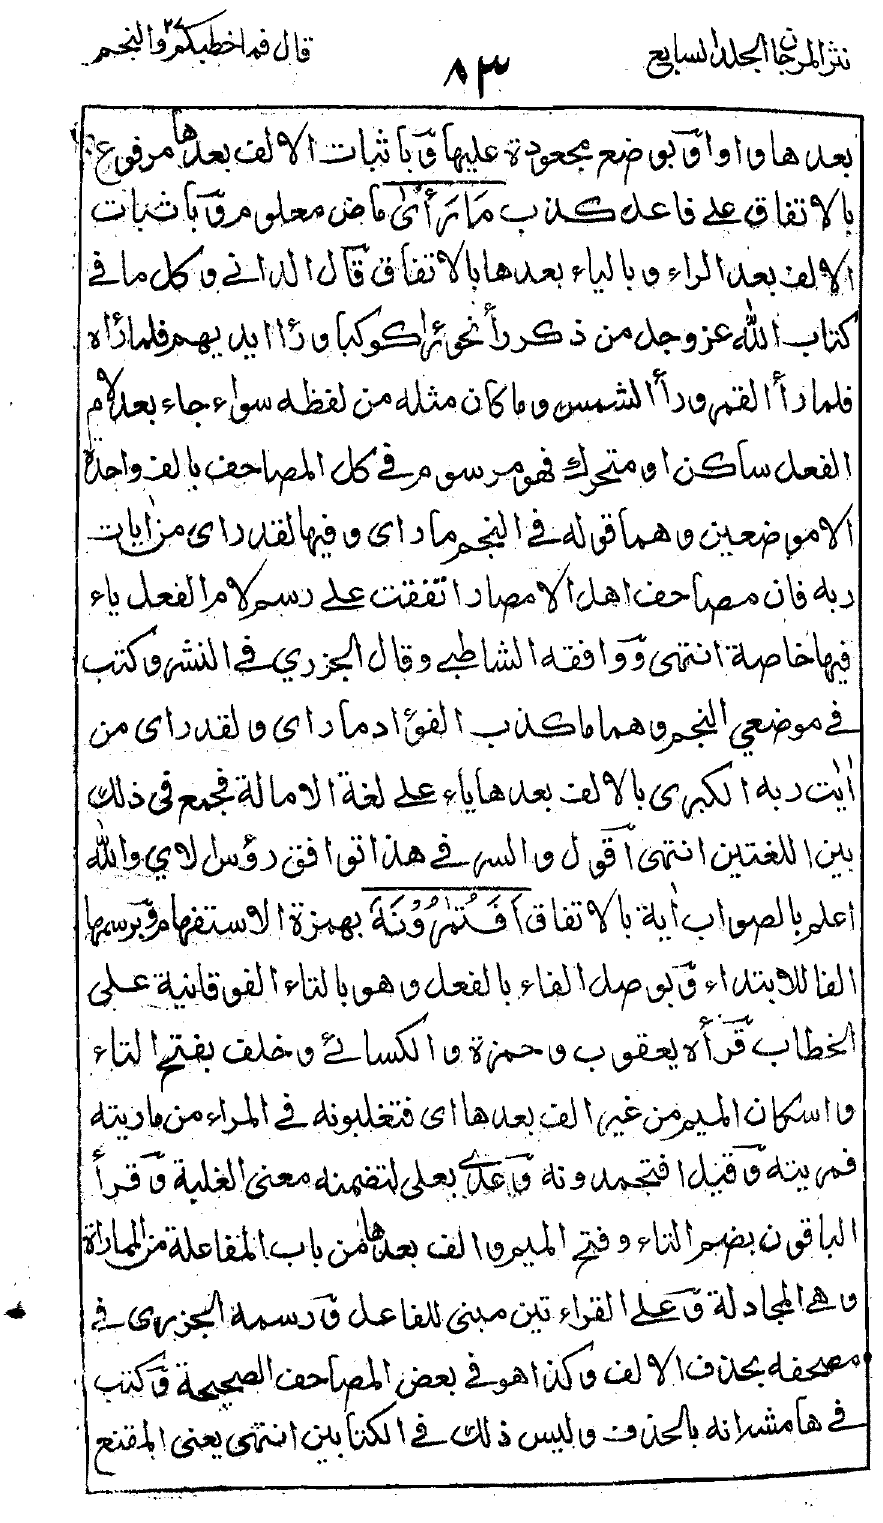 نثر المرجان المجلد السابع
٨٣
قال فما خطبكم ٢٧ والنجم
بعدها واوا وبوضع مجعودة عليها وباثبات الالف بعدها مرفوع
بالاتفاق على فاعل كذب مَا رَأىٰ ماض معلوم وباثبات
الالف بعد الراء وبالياء بعدها بالاتفاق قال الداني وكل ما في
كتاب الله عز وجل من ذكر رأ نحو رأ كوكبا ورأ ايديهم فلما رأه
فلما رأ القمر ورأ الشمس وما كان مثله من لفظه سواء جاء بعد لام
الفعل ساكن او متحرك فهو مرسوم في كل المصاحف بالف واحدة
الا موضعين وهما قوله في النجم ما راى وفيها لقد راى من ايات
ربه فان مصاحف اهل الامصار اتفقت على رسم لام الفعل ياء
فيها خاصة انتهى ووافقه الشاطبي وقال الجزري في النشر وكتب
في موضعي النجم وهما ما كذب الفؤاد ما راى ولقد راى من
أيٰت ربه الكبرى بالالف بعدها ياء على لغة الامالة فجمع في ذلك
بين اللغتين انتهى اقول والسر في هذا توافق رؤس لاي والله
اعلم بالصواب اٰية بالاتفاق اَفَتُمٰرُوْنَهٗ بهمزة الاستفهام وبرسمها
الفا للابتداء وبوصل الفاء بالفعل وهو بالتاء الفوقانية على
الخطاب قرأه يعقوب وحمزة والكسائي وخلف بفتح التاء
واسكان الميم من غير الف بعدها اى فتغلبونه في المراء من ماريته
فمريته وقيل افتجحدونه وعدي بعلى لتضمنه معنى الغلبة وقرأ
الباقون بضم التاء وفتح الميم والف بعدها من باب المفاعلة من المماراة
وهي المجادلة وعلى القراءتين مبنى للفاعل ورسمه الجزرى في
مصحفه بحذف الالف وكذا هو في بعض المصاحف الصحيحة وكتب
في هامشه انه بالحذف وليس ذلك في الكتابين انتهى يعنى المقنع